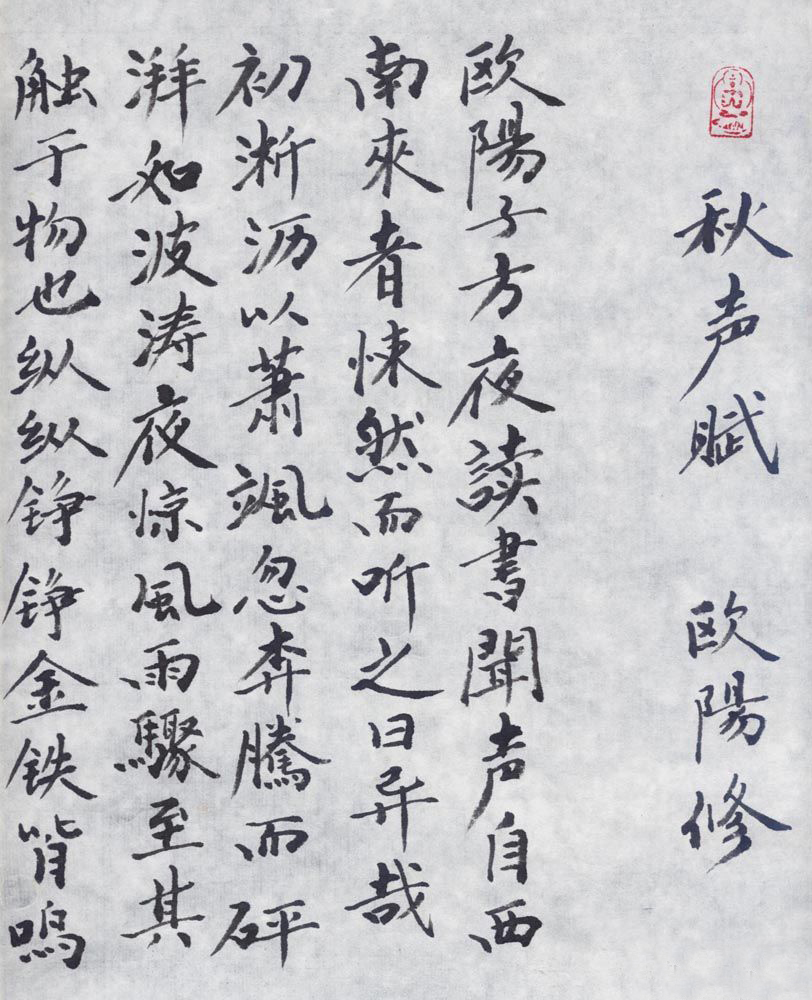 秋声赋 欧陽修
欧陽子方夜读書聞声自西
南來者悚然而听之曰异哉
初淅沥以萧颯忽奔騰而砰
湃如波涛夜惊風雨驟至其
触于物也纵纵铮铮金铁皆鳴